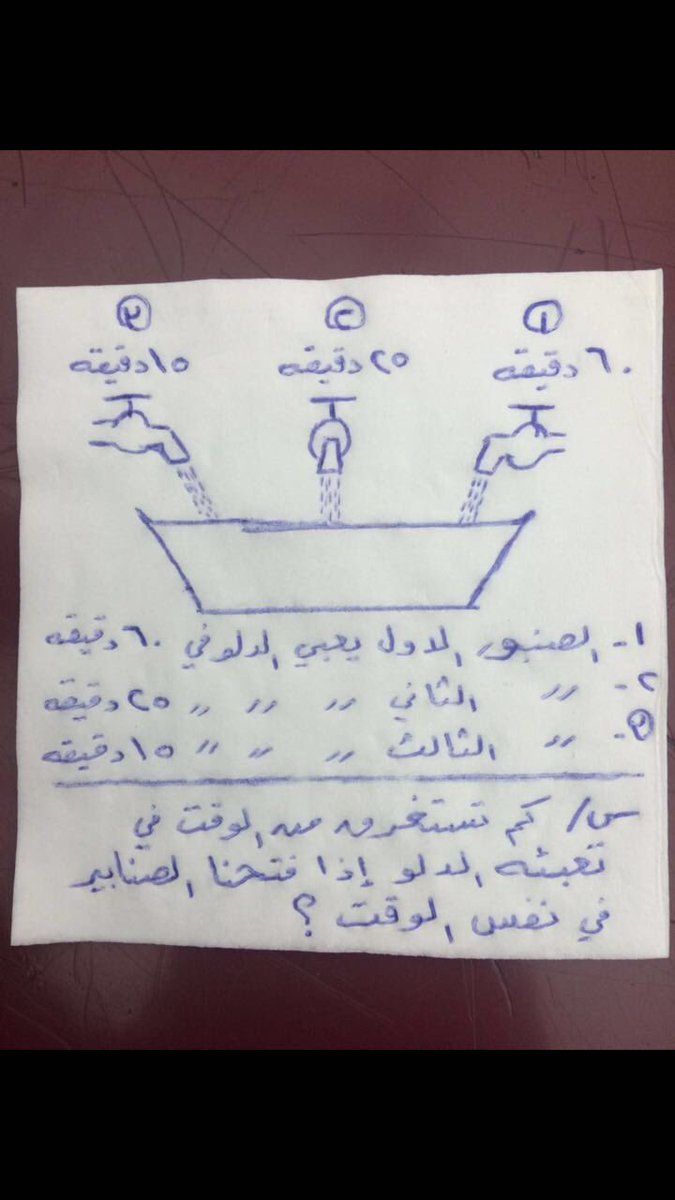 ١ ٢ ٣
٦٠ دقيقه ٢٥ دقيقه ١٥ دقيقه
١- الصنبور الاول يعبي الدلو في ٦٠ دقيقه
٢- 〃 الثاني 〃 〃 〃 ٢٥ دقيقه
٣- 〃 الثالث 〃 〃 〃 ١٥ دقيقه
س/ كم تستغرق من الوقت في
تعبئه الدلو إذا فتحنا الصنابير
في نفس الوقت ؟